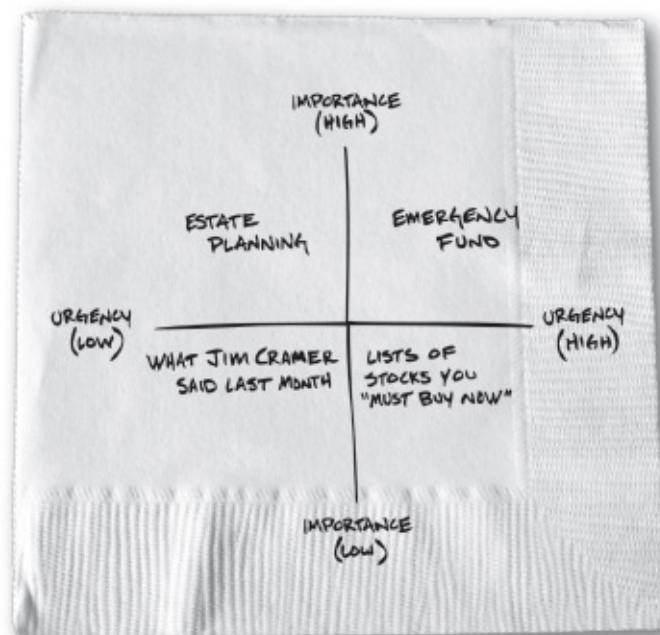 IMPORTANCE
(HIGH)
ESTATE
PLANNING
EMERGENCY
FUND
URGENCY
(LOW)
URGENCY
(HIGH)
WHAT JIM CRAMER
SAID LAST MONTH
LISTS OF
STOCKS YOU
"MUST BUY NOW"
IMPORTANCE
(LOW)